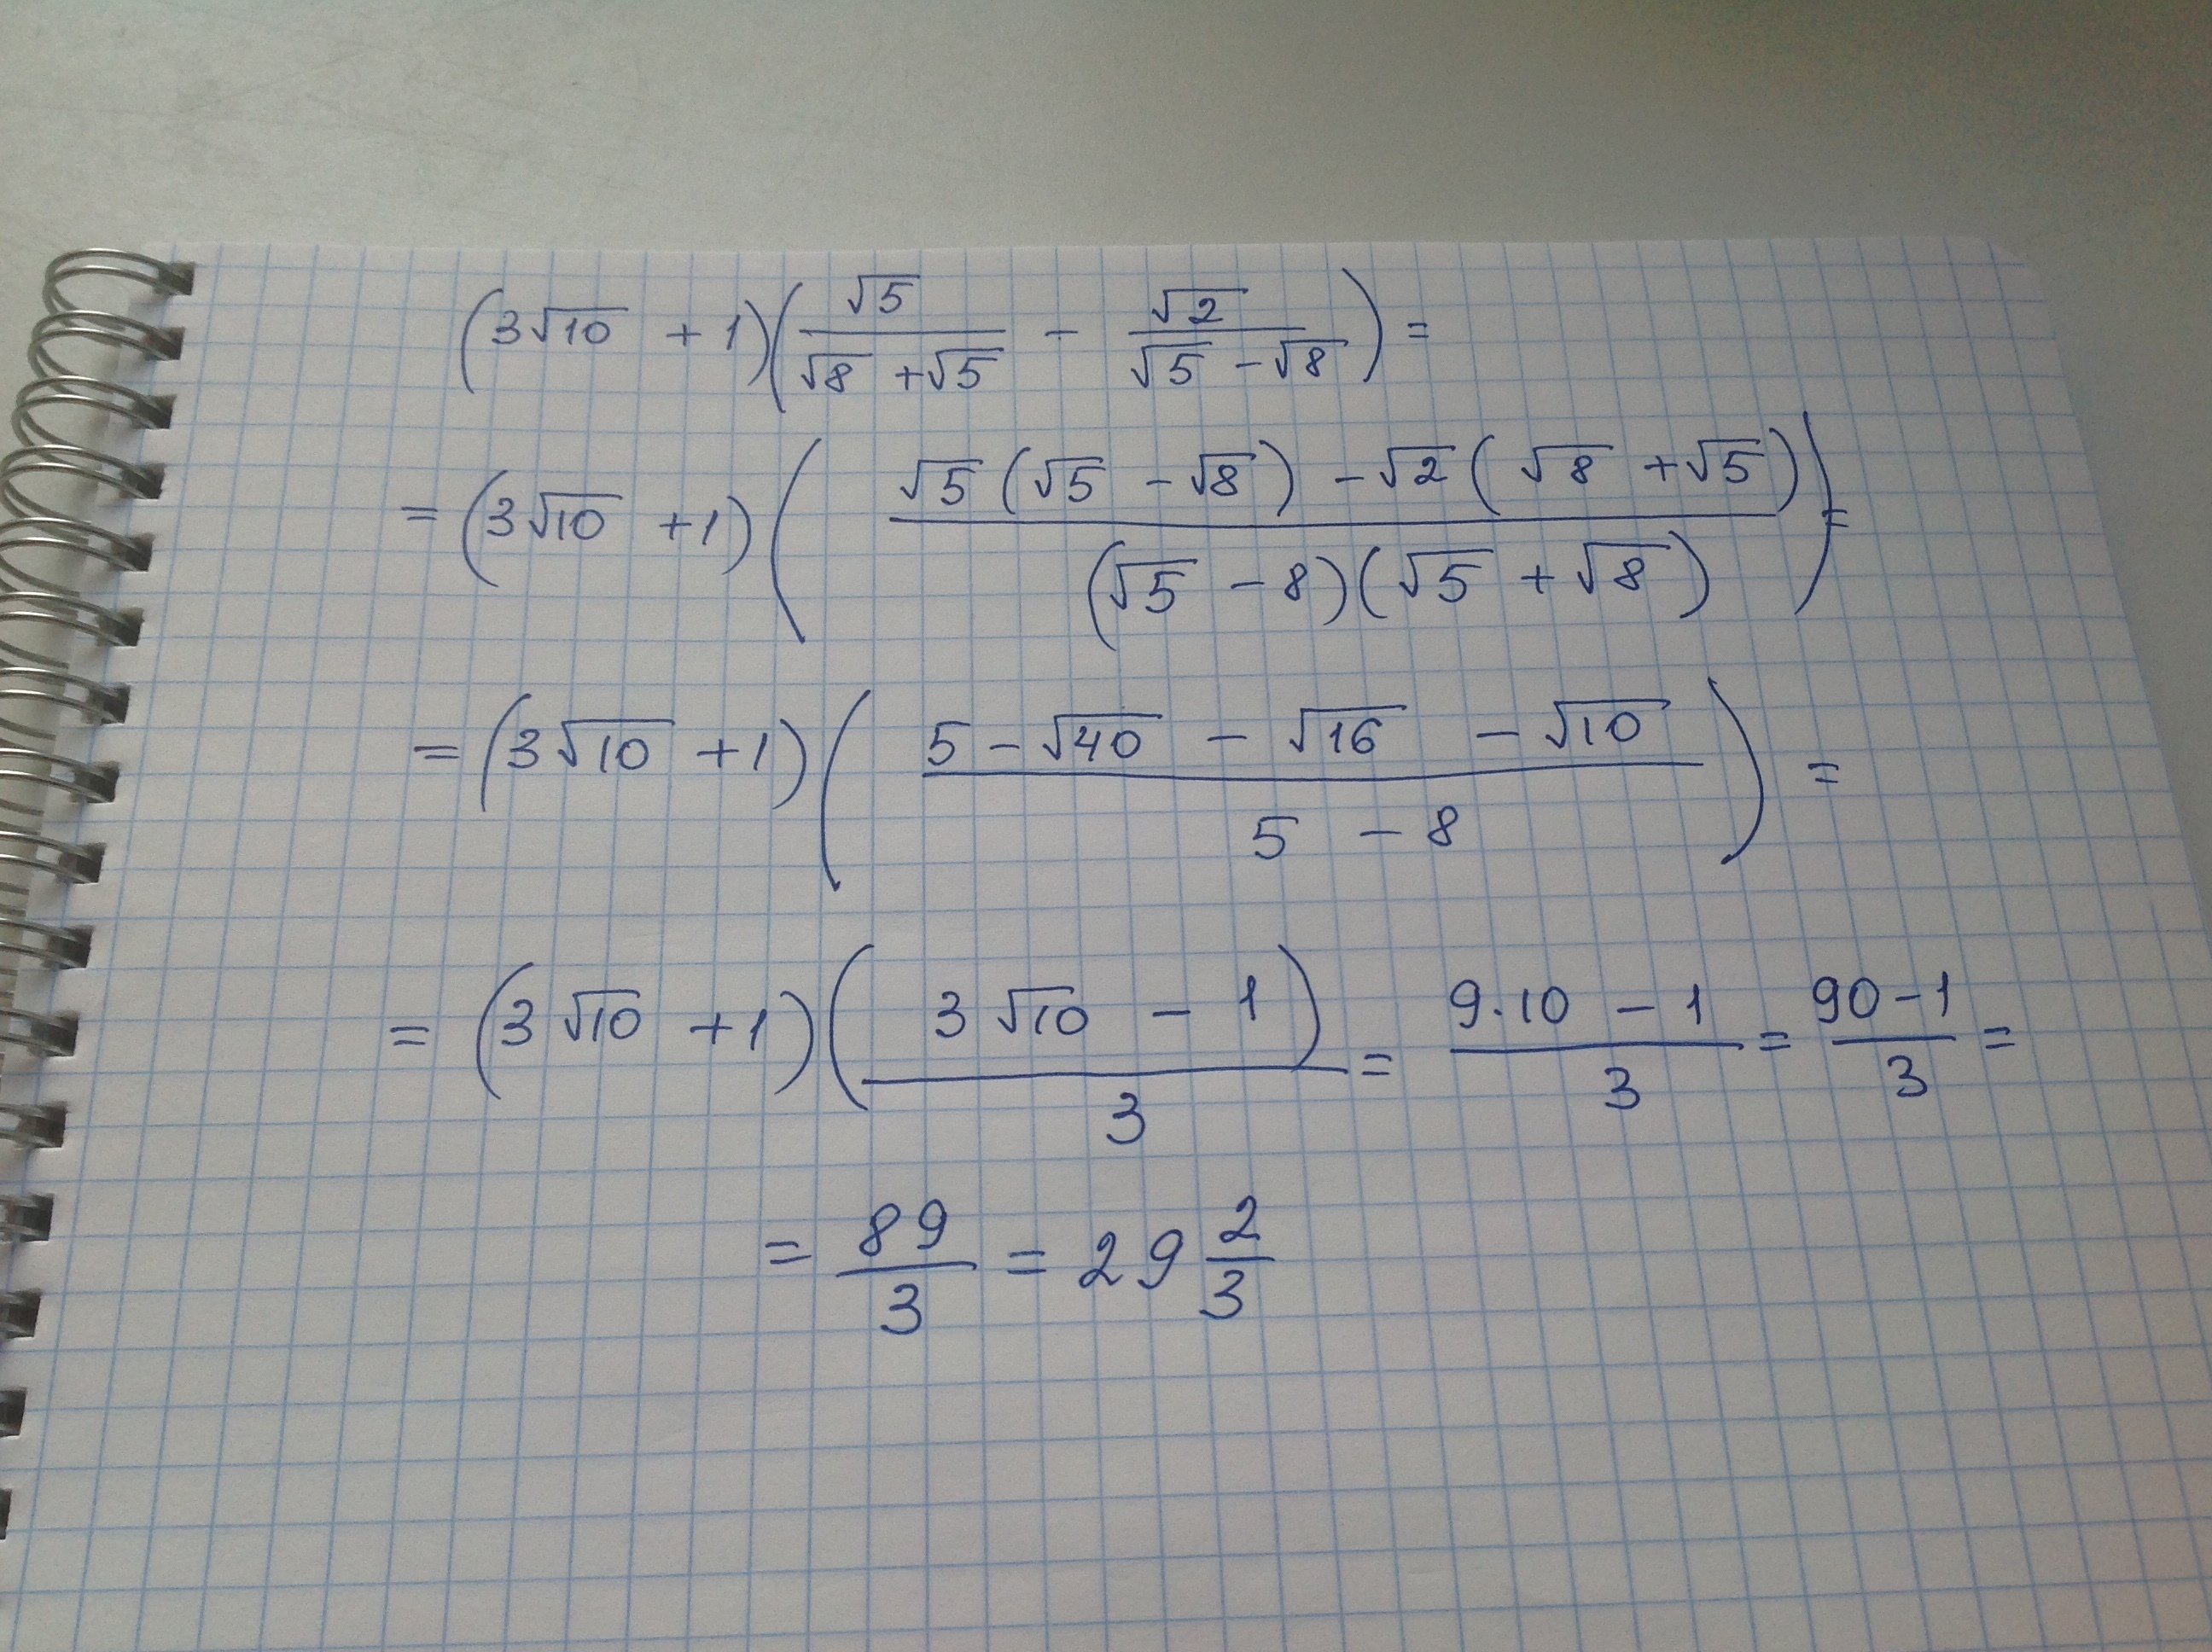 (3√10 + 1)(√5/(√8 + √5) - √2/(√5 - √8)) =
= (3√10 + 1)((√5(√5 - √8) - √2(√8 + √5))/((√5 - 8)(√5 + √8))) =
= (3√10 + 1)((5 - √40 - √16 - √10)/(5 - 8)) =
= (3√10 + 1)((3√10 - 1)/3) = (9·10 - 1)/3 = (90 - 1)/3 =
= 89/3 = 29 2/3